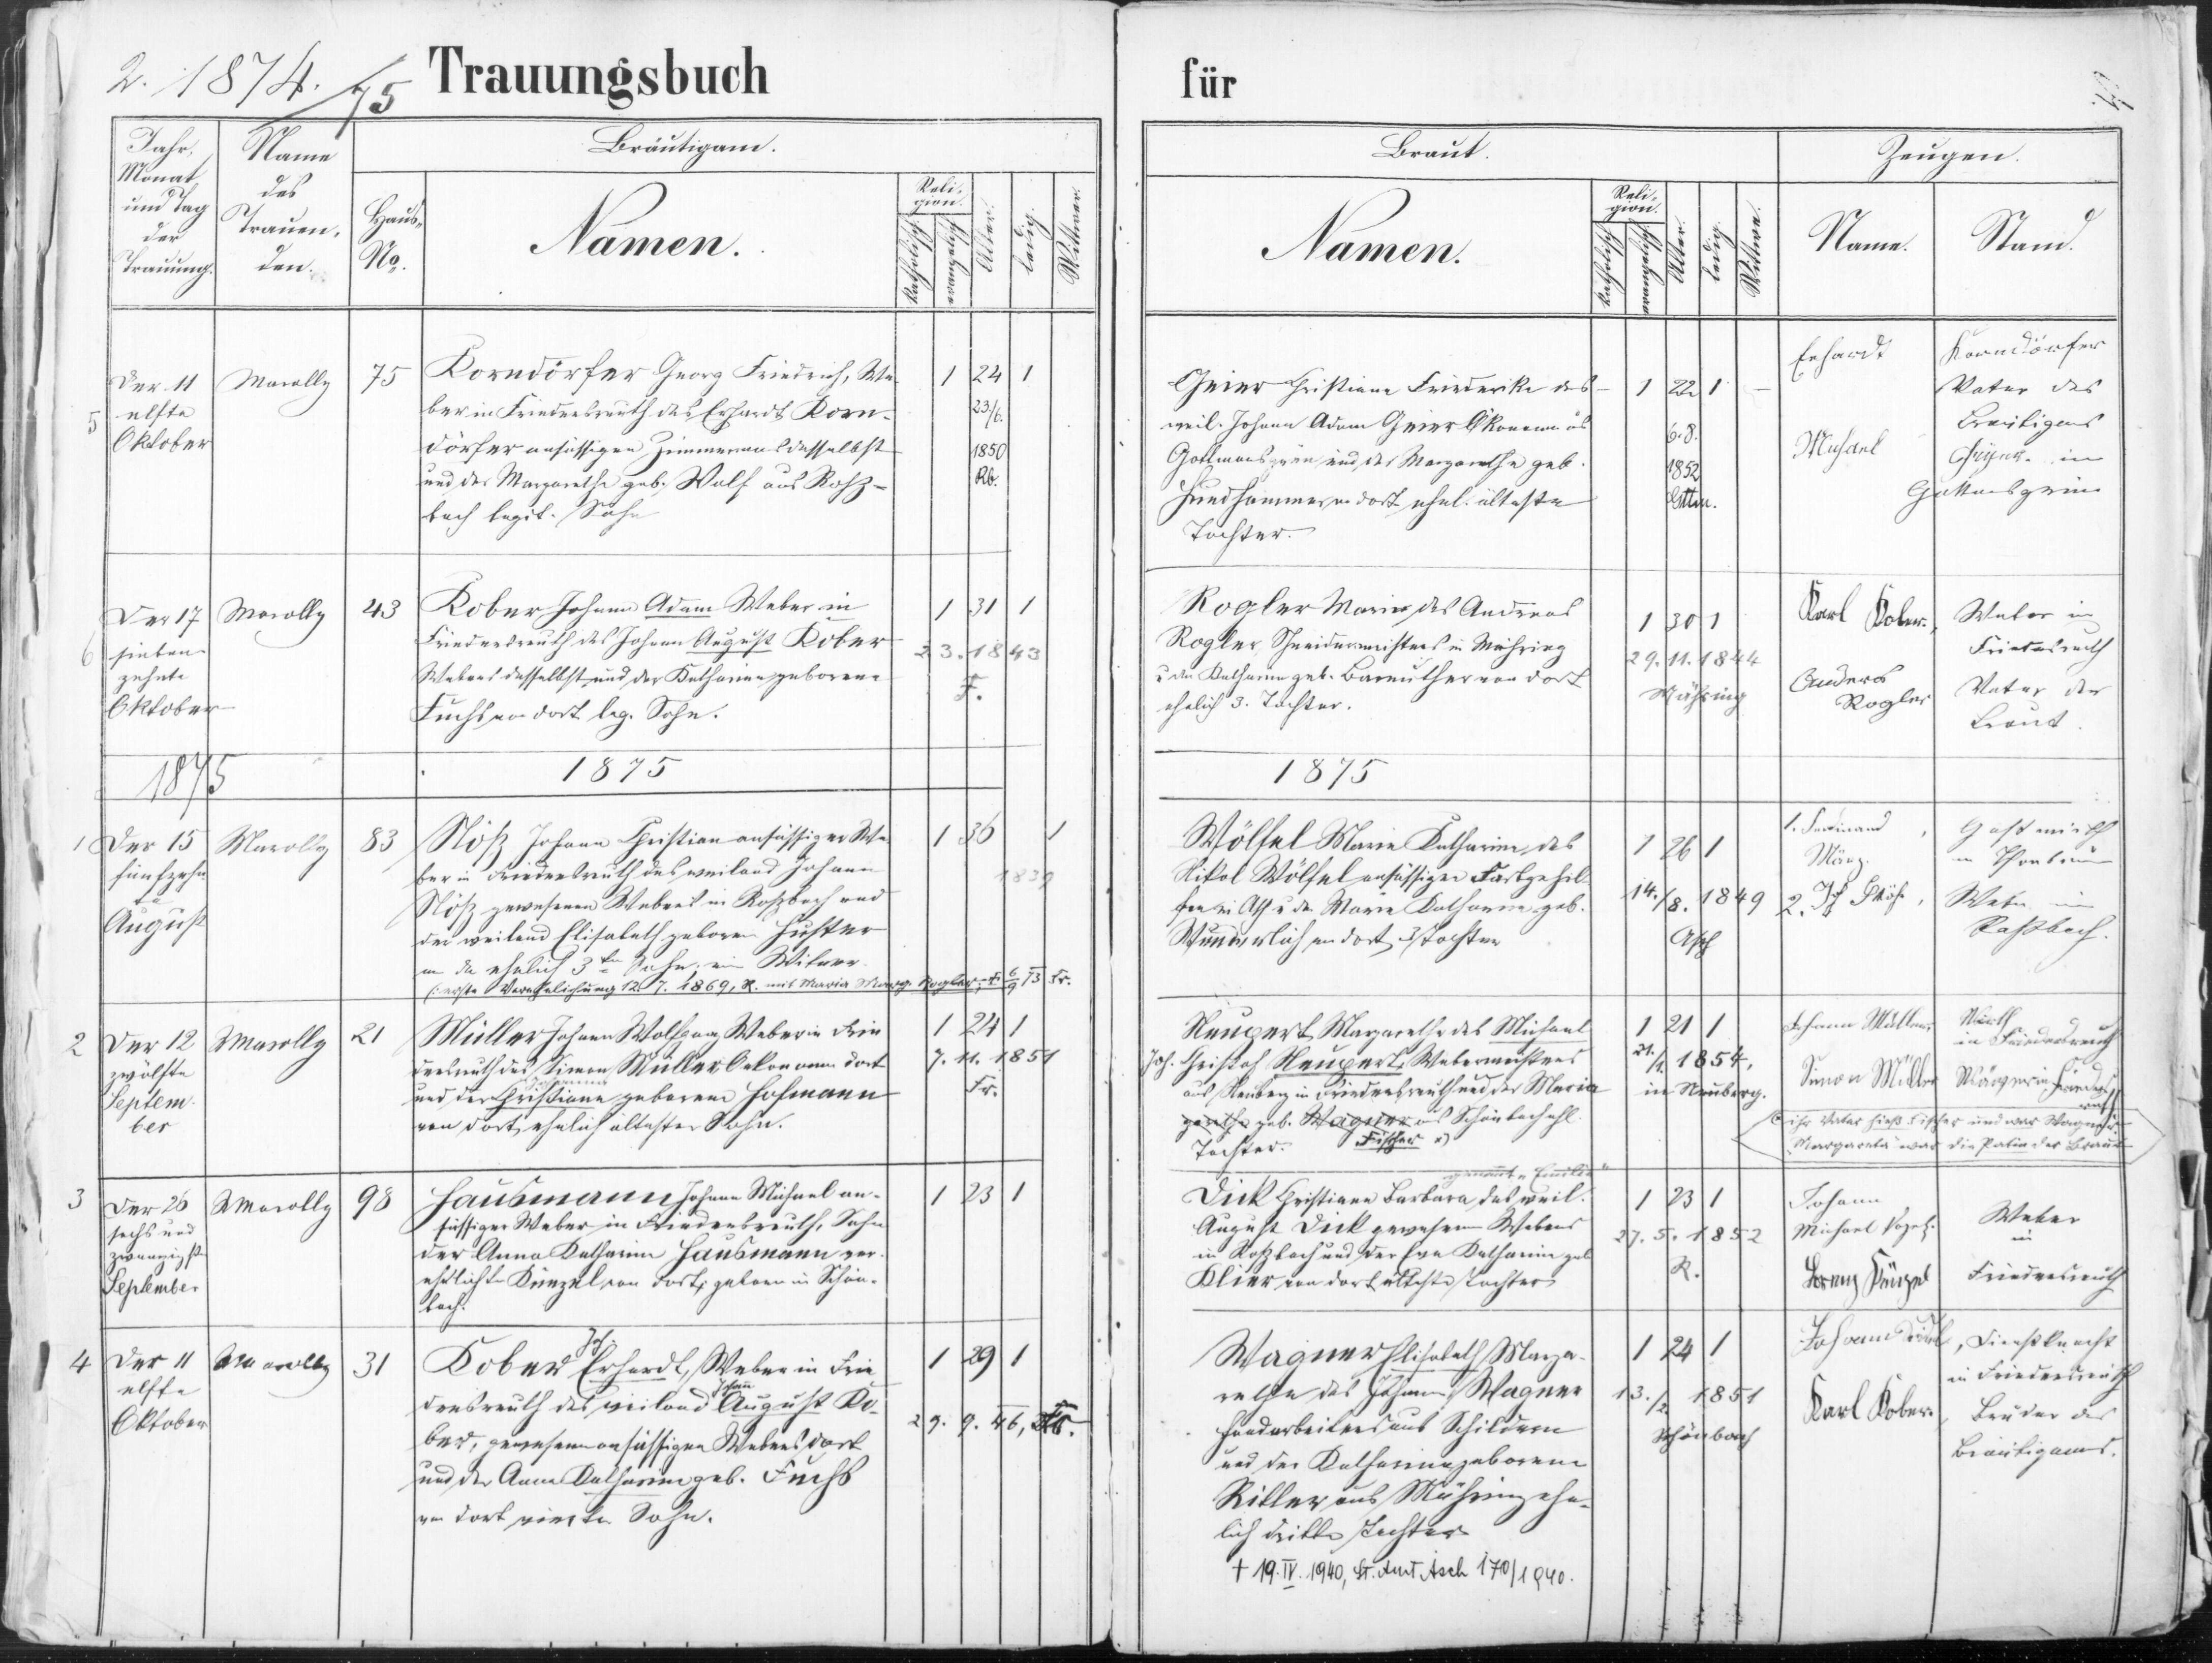 2. 1874./75 Trauungsbuch
für
Jahr, Monat und Tag der Trauung.
Name des Trauenden.
Bräutigam.
Haus-No.
Namen.
Religion.
katholisch
evangelisch
Alter.
ledig.
Wittwer.
Braut.
Namen.
Religion.
katholisch
evangelisch
Alter.
ledig.
Wittwe.
Zeugen.
Name.
Stand.
5
Der 11
elfte
Oktober
Marolly
75
Korndörfer Georg Friedrich, We-
ber in Friedersreuth des Erhardt Korn-
dörfer ansässigen Zimmermanns daselbst
und der Margarethe geb. Wolf aus Roßz-
bach legit. Sohn
1 24 1
23./6.
1850
Rb.
Geier Christiane Friederike des
weil. Johann Adam Geier Ökonom aus
Gottmannsgrün und der Margarethe geb.
Hundhammer von dort ehel. älteste
Tochter.
1 22 1
6.8.
1852
Gttm.
Erhardt
Korndörfer
Vater des
Bräutigams
Michael
Geyer in
Gottmansgrün
6
Der 17
sieben-
zehnte
Oktober
Marolly
43
Kober Johann Adam Weber in
Friedersreuth des Johann August Kober
Webers daselbst und der Katharina geborene
Fuchs von dort leg. Sohn.
1 31 1
23.1843
F.
Rogler Maria des Andreas
Rogler, Schneidermeisters in Mähring
u der Katharina geb. Bareuther von dort
ehelich 3. Tochter.
1 30 1
29.11.1844
Mähring
Karl Kober,
Weber in
Friedersreuth
Anders
Rogler
Vater der
Braut.
1875
1875
1875
1
Der 15
fünfzehn
te
August
Marolly
83
Nötz Johann Christian ansässiger We-
ber in Friedersreuth des weiland Johann
Nötz gewesenen Webers in Roßbach und
der weiland Elisabeth geboren Huster
von da ehelich 3ter Sohn, ein Witwer
(: erste Verehelichung 12.7.1869, R. mit Maria Marg. Rogler, † 6/9 73 Fr.
1 36 1
1839
Wölfel Marie Katharina, des
Nikol Wölfel ansässigen Farbgehil-
fen in Asch u. der Marie Katharina geb.
Wunderlich von dort 3 Tochter
1 26 1
14./8. 1849
Asch
1. Ferdinand
März.
Gastwirth
in Thonbrunn
2.
Weber in
Roßbach.
2
Der 12
zwölfte
Septem-
ber
Marolly
21
Müller Johann Wolfgang Weber in Frie
dersreuth des Simon Müller Oekonomen dort
Johanna
und der Christiane geborene Hofmann
von dort, ehelich ältester Sohn.
1 24 1
7.11.1851
Fr.
Neupert Margarethe des Michael
Joh. Christof Neupert, Webermeisters
aus Neuberg in Friedersreuth und der Maria
garethe geb. Wagner aus Schönbach ehl.
Tochter. Fischer x)
1 21 1
21./1. 1854,
in Neuberg.
Johann Müller,
Wirth
in Friedersreuth
Simon Müller
x ihr Vater hieß Fischer und war Wagner.
Margareta war die Patin der Braut
3
Der 26
sechs und
zwanzigst
September
Marolly
98
Hausmann Johann Michael an-
sässiger Weber in Friedersreuth, Sohn
der Anna Katharina Hausmann ver-
ehelichte Künzel von dort, geboren in Schön-
bach.
1 23 1
genannt „Emilie"
Dick Christiane Barbara, des weil.
August Dick gewesenen Webers
in Roßbach und der Eva Katharina geb
Klier von dort älteste Tochter
1 23 1
27.5.1852
R.
Johann
Michael
Weber
in
Lorenz Künzel
Friedersreuth
4
Der 11
elfte
Oktober
Marolly
31
Joh.
Kober Erhardt, Weber in Frie
Johann
dersreuth des weiland August Ko-
ber, gewesenen ansässigen Webers dort
und der Anna Katharina geb. Fuchs
von dort vierter Sohn.
1 29 1
29. 9. 46, Fr.
Wagner Elisabeth Marga-
rethe des Johann Wagner
Handarbeiters aus Schildern
und der Katharina geborene
Ritter aus Mähring ehe-
lich dritte Tochter
† 19.IV.1940, St. Amt Asch 170/1940.
1 24 1
13./2. 1851
Schönbach
Johann
, Dienstknecht
in Friedersreuth
Karl Kober,
Bruder des
Bräutigams.